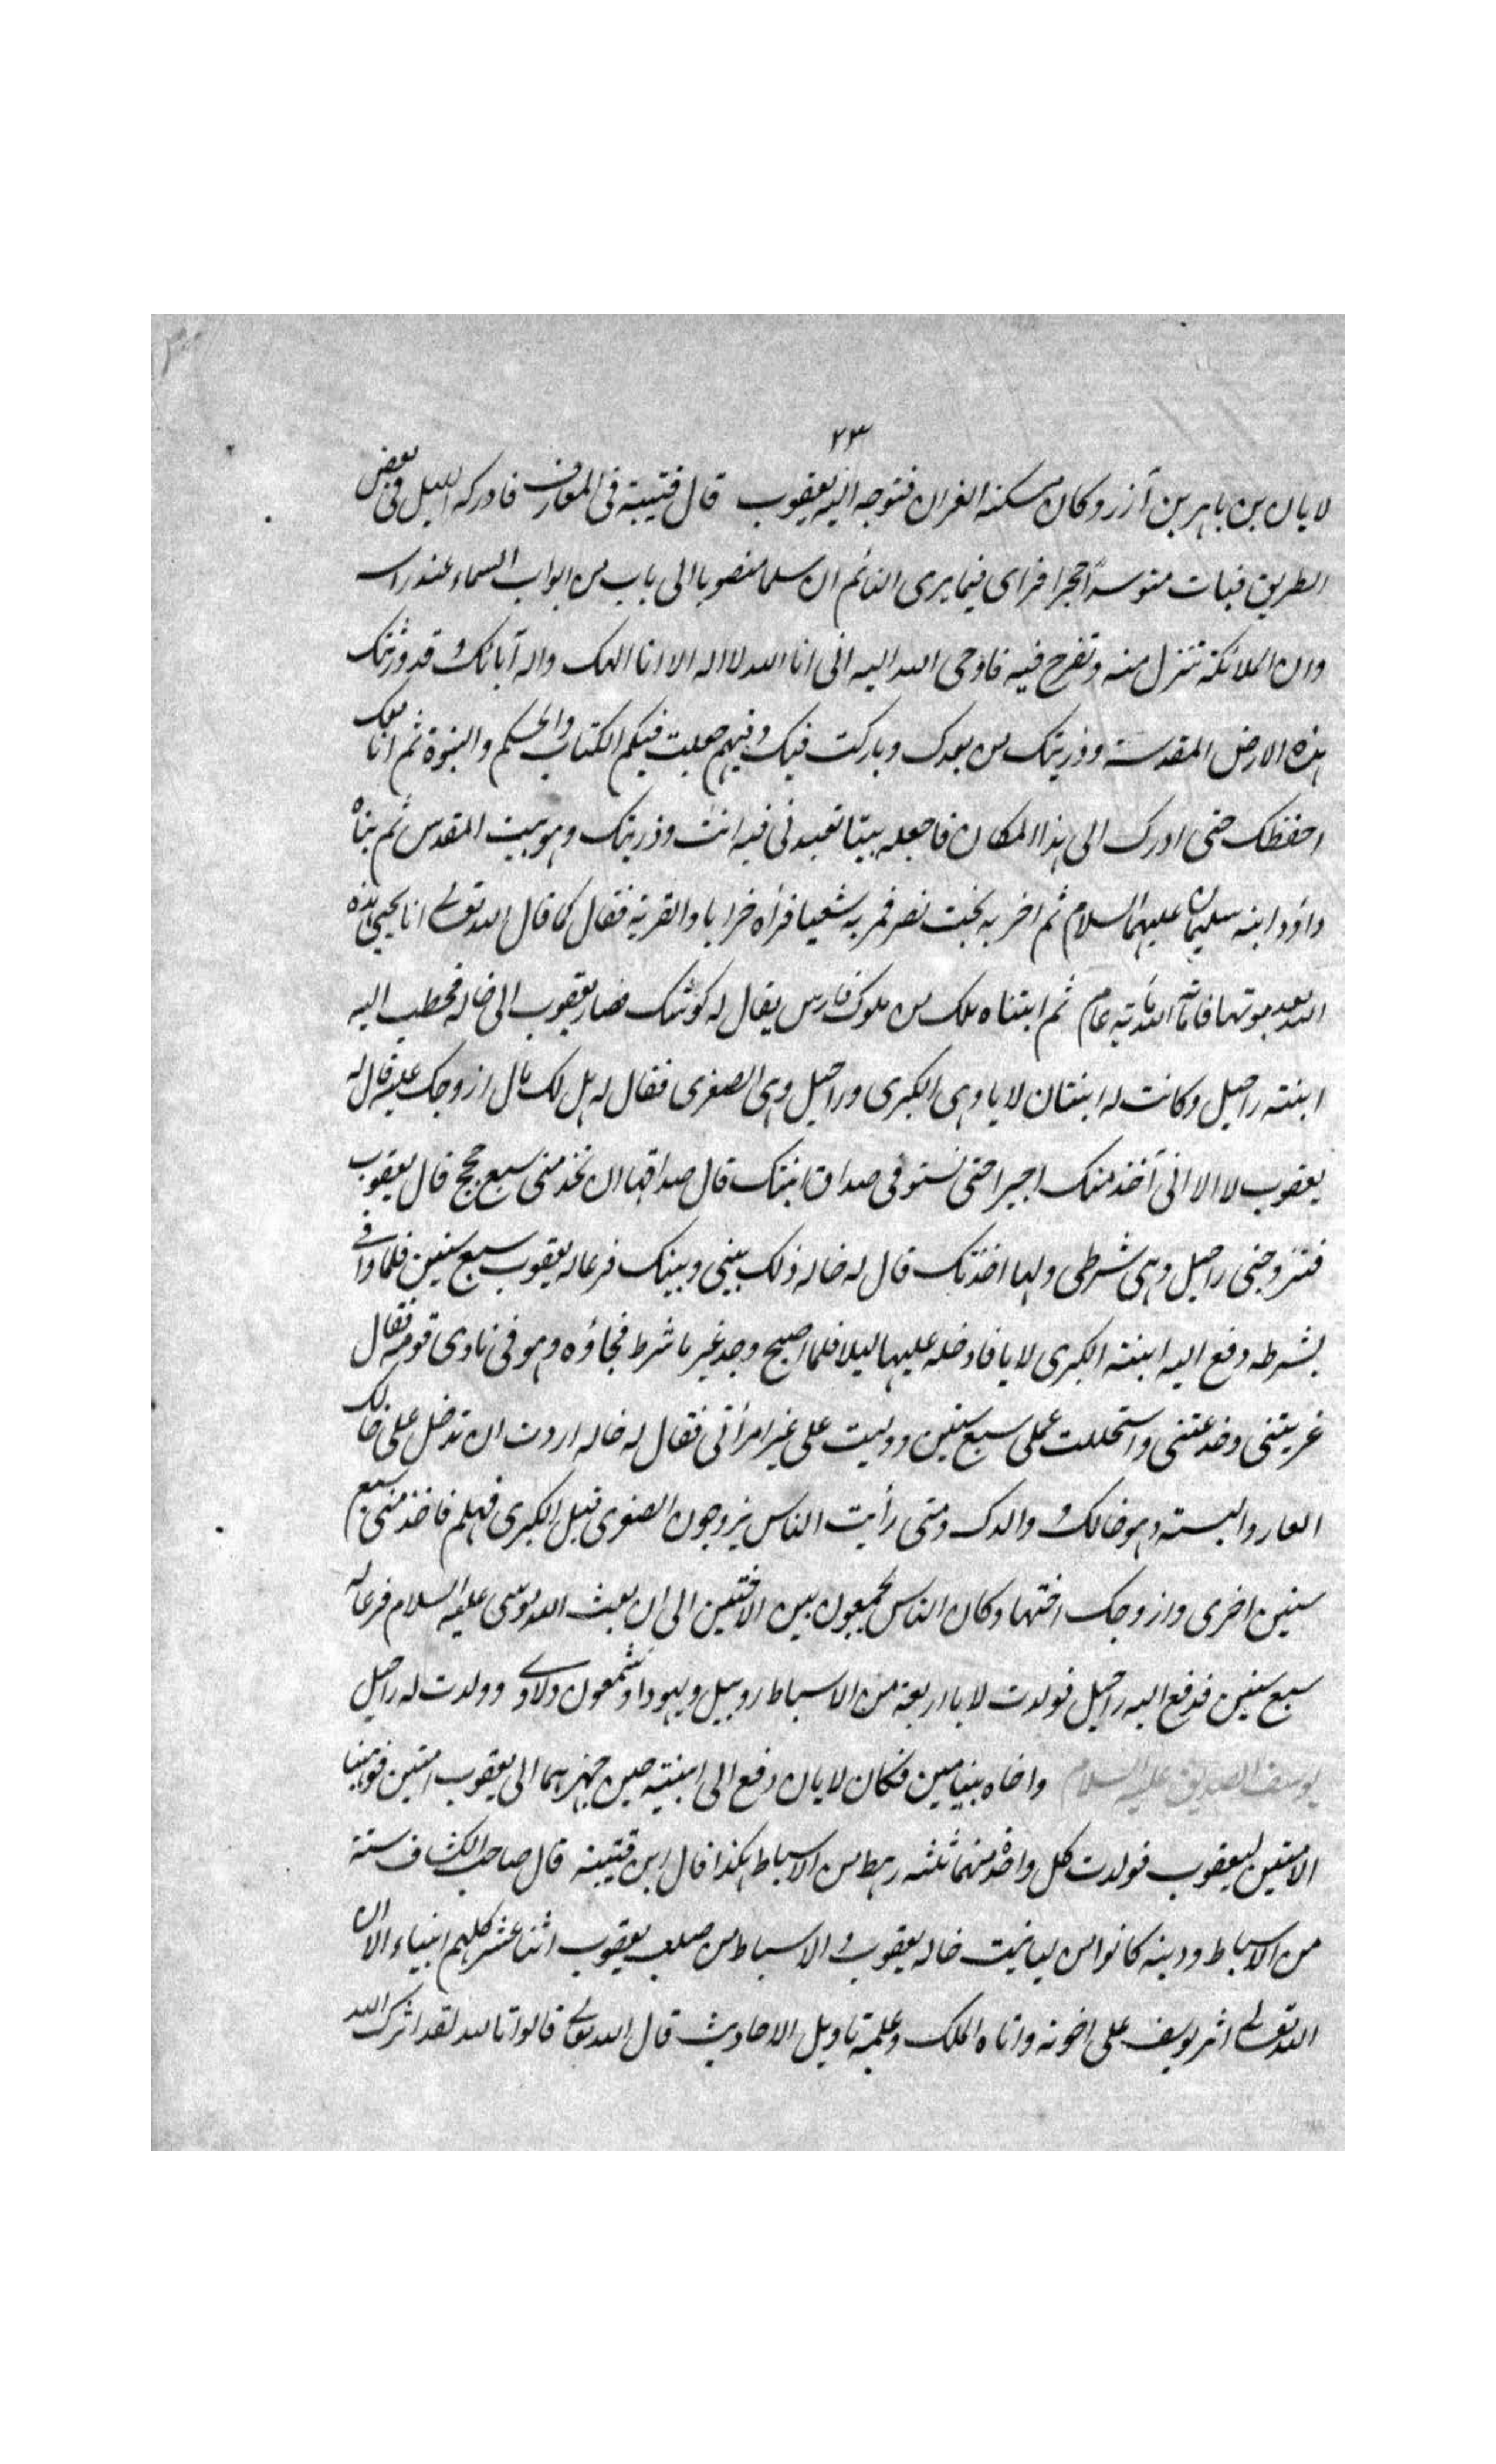 ٢٣
لايان بن باهر بن آزر وكان مسكنه الفران فتوجه اليه يعقوب قال قتيبة فى المعارف فادركه الليل فى بعض
الطريق فبات متوسدا حجرا فراى فيما يرى النائم ان سلما منصوبا الى باب من ابواب السماء عند راسه
وان الملائكة تنزل منه وتعرج فيه فاوحى الله اليه انى انا الله لا اله الا انا الهك واله آبائك وقد ورثتك
هذه الارض المقدسة وذريتك من بعدك وباركت فيك وفيهم جعلت فيكم الكتاب والحكم والنبوة ثم انا معك
احفظك حتى ادرك الى هذا المكان فاجعله بيتا تعبدنى فيه انت وذريتك وهو بيت المقدس ثم بناه
داؤد وابنه سليمان عليهما السلام ثم اخربه بخت نصر فمر به شعيا فرأه خرابا والقرية فقال كما قال الله تعالى انا يحيى هذه
الله بعد موتها فاماته الله مائة عام ثم ابتناه ملك من ملوك فارس يقال له كوشك فصار يعقوب الى خاله فخطب اليه
ابنته راحيل وكانت له ابنتان لايا وهى الكبرى وراحيل وهى الصغرى فقال له هل لك مال ازوجك عليه قال له
يعقوب لا الا انى آخذ منك اجيرا حتى تستوفى صداق ابنتك قال صداقها ان تخدمنى سبع حجج قال يعقوب
فتزوجنى راحيل وهى شرطى ولها اخدتك قال له خاله ذلك بينى وبينك فرعا له يعقوب سبع سنين فلما وافى
بشرطه دفع اليه ابنته الكبرى لايا فادخله عليها ليلا فلما اصبح وجد غير ما شرط فجاؤه وهو فى نادى قومه فقال
غريتنى وخدعتنى واستحللت عملى سبع سنين ودلست على غير امراتى فقال له خاله اردت ان تدخل على خالك
العار والبسته وهو خالك والدك ومتى رأيت الناس يزوجون الصغرى قبل الكبرى فهلم فاخدمنى سبع
سنين اخرى وازوجك اختها وكان الناس يجمعون بين الاختين الى ان بعث الله موسى عليه السلام فرعا له
سبع سنين فدفع اليه راحيل فولدت لايا اربعة من الاسباط روبيل ويهودا وشمعون ولاوى وولدت له راحيل
يوسف الصديق عليه السلام واخاه بنيامين فكان لايان دفع الى ابنتيه حين جهزهما الى يعقوب امتين فوهبتا
الامتين ليعقوب فولدت كل واحدة منهما ثلثه رهط من الاسباط هكذا قال ابن قتيبة قال صاحب الكشاف ستة
من الاسباط ودينه كانوا من ليا بنت خاله يعقوب والاسباط من صلب يعقوب اثنا عشر كلهم انبياء الا ان
الله تعالى اثر يوسف على اخوته واتاه الملك وعلمه تاويل الاحاديث قال الله تعالى قالوا تالله لقد اثرك الله